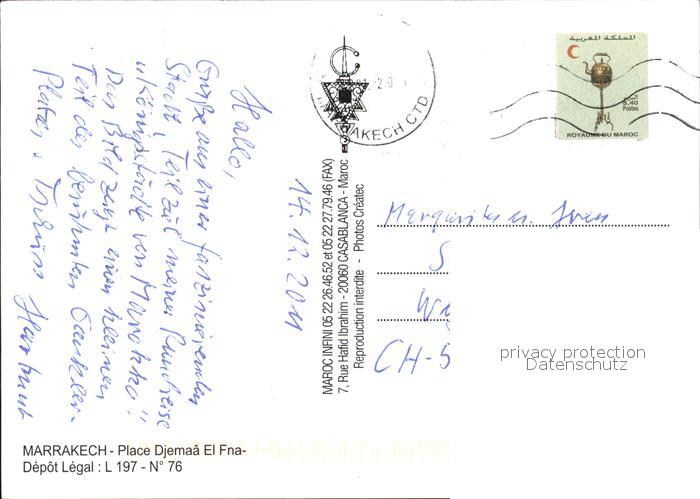 Hallo,
Grüße aus einer faszinierenden
Stadt, Teil meiner Rundreise
"Königsstädte von Marokko"!
Das Bild zeigt einen kleinen
Teil des berühmten Gaukler-
Platzes. Tschüss Hartmut
14.12.2011
MAROC INFINI 05 22 26.46.52 et 05 22 27.79.46 (FAX)
7, Rue Hafid Ibrahim - 20060 CASABLANCA - Maroc
Reproduction interdite - Photos Créatec
MARRAKECH CTD
المملكة المغربية
البريد
8,40
Postes
ROYAUME DU MAROC
Margarita u. Sven
S
CH-5
privacy protection
Datenschutz
MARRAKECH - Place Djemaâ El Fna-
Dépôt Légal : L 197 - N° 76